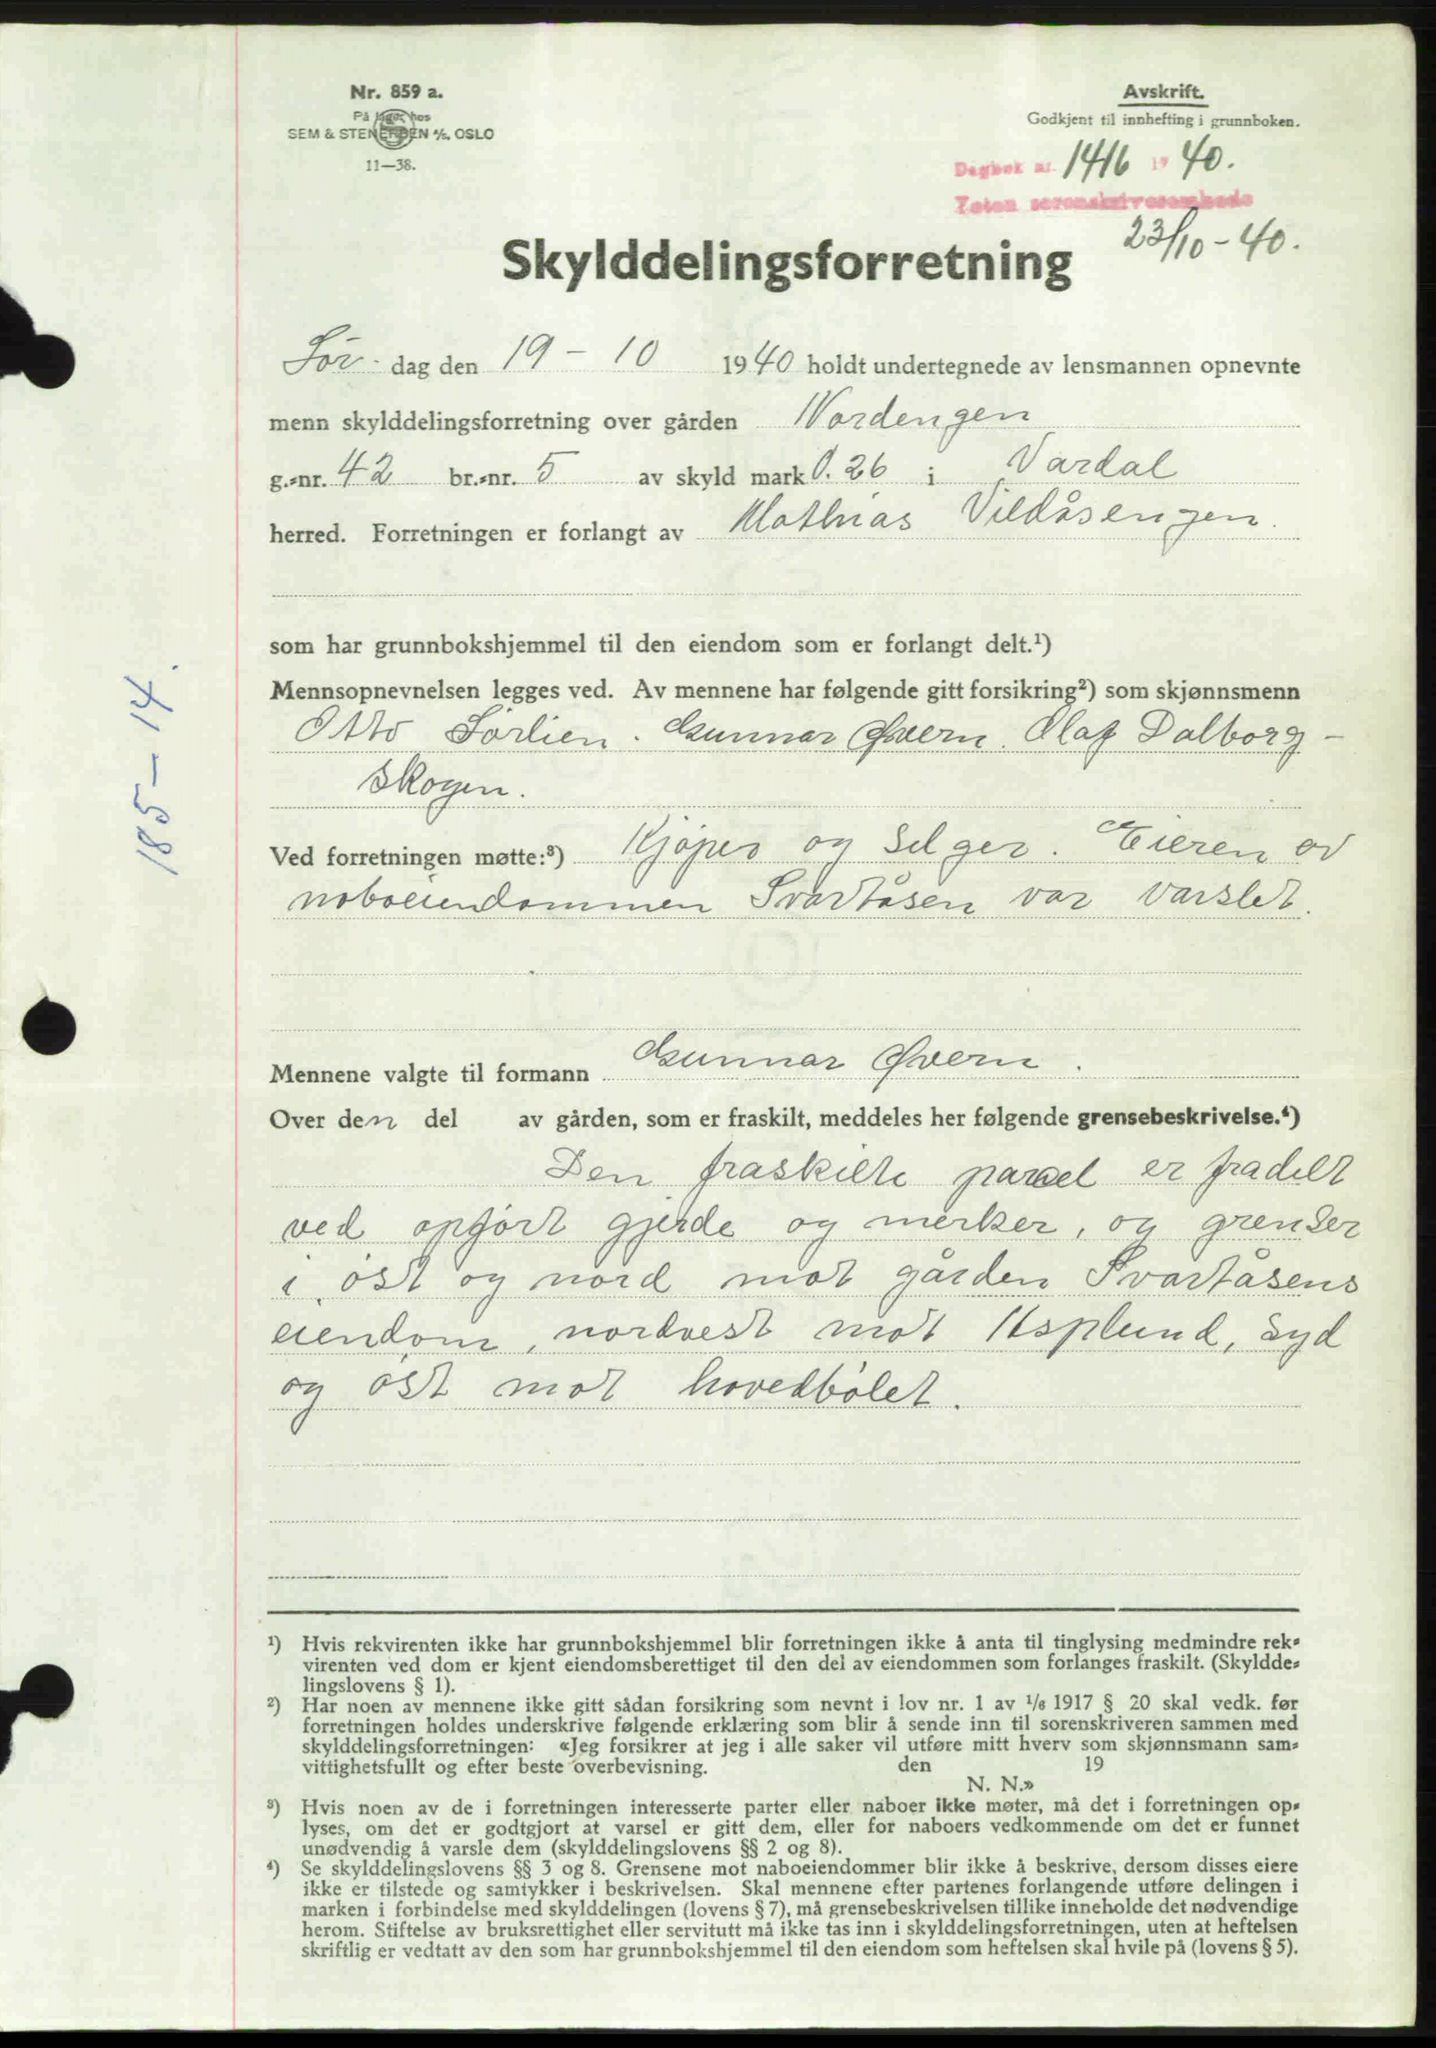 Nr. 859 a.
På lager hos
SEM & STENERSEN A/S, OSLO
11—38.
Avskrift.
Godkjent til innhefting i grunnboken.
Dagbok nr. 1416 1940.
Toten sorenskriverembede
23/10-40.
Skylddelingsforretning
Lør dag den 19 - 10 1940 holdt undertegnede av lensmannen opnevnte
menn skylddelingsforretning over gården Nordengen
g.-nr. 42 br.-nr. 5 av skyld mark 0.26 i Vardal
herred. Forretningen er forlangt av Mathias Vildåsengen.
som har grunnbokshjemmel til den eiendom som er forlangt delt.¹)
Mennsopnevnelsen legges ved. Av mennene har følgende gitt forsikring²) som skjønnsmenn
Otto Sørlien. Gunnar Øvern. Olaf Dalborg-
skogen.
Ved forretningen møtte:³) Kjøper og selger. Eieren av
naboeiendommen Svartåsen var varslet.
Mennene valgte til formann Gunnar Øvern.
Over den del av gården, som er fraskilt, meddeles her følgende grensebeskrivelse.⁴)
Den fraskilte parcel er fradelt
ved opført gjerde og merker, og grenser
i øst og nord mot gården Svartåsens
eiendom, nordvest mot Asplund, syd
og øst mot hovedbølet.
185-14.
¹) Hvis rekvirenten ikke har grunnbokshjemmel blir forretningen ikke å anta til tinglysing medmindre rek-
virenten ved dom er kjent eiendomsberettiget til den del av eiendommen som forlanges fraskilt. (Skyldde-
lingslovens § 1).
²) Har noen av mennene ikke gitt sådan forsikring som nevnt i lov nr. 1 av 1/6 1917 § 20 skal vedk. før
forretningen holdes underskrive følgende erklæring som blir å sende inn til sorenskriveren sammen med
skylddelingsforretningen: «Jeg forsikrer at jeg i alle saker vil utføre mitt hverv som skjønnsmann sam-
vittighetsfullt og efter beste overbevisning. den 19
N. N.»
³) Hvis noen av de i forretningen interesserte parter eller naboer ikke møter, må det i forretningen op-
lyses, om det er godtgjort at varsel er gitt dem, eller for naboers vedkommende om det er funnet
unødvendig å varsle dem (skylddelingslovens §§ 2 og 8).
⁴) Se skylddelingslovens §§ 3 og 8. Grensene mot naboeiendommer blir ikke å beskrive, dersom disses eiere
ikke er tilstede og samtykker i beskrivelsen. Skal mennene efter partenes forlangende utføre delingen i
marken i forbindelse med skylddelingen (lovens § 7), må grensebeskrivelsen tillike inneholde det nødvendige
herom. Stiftelse av bruksrettighet eller servitutt må ikke tas inn i skylddelingsforretningen, uten at heftelsen
skriftlig er vedtatt av den som har grunnbokshjemmel til den eiendom som heftelsen skal hvile på (lovens § 5).